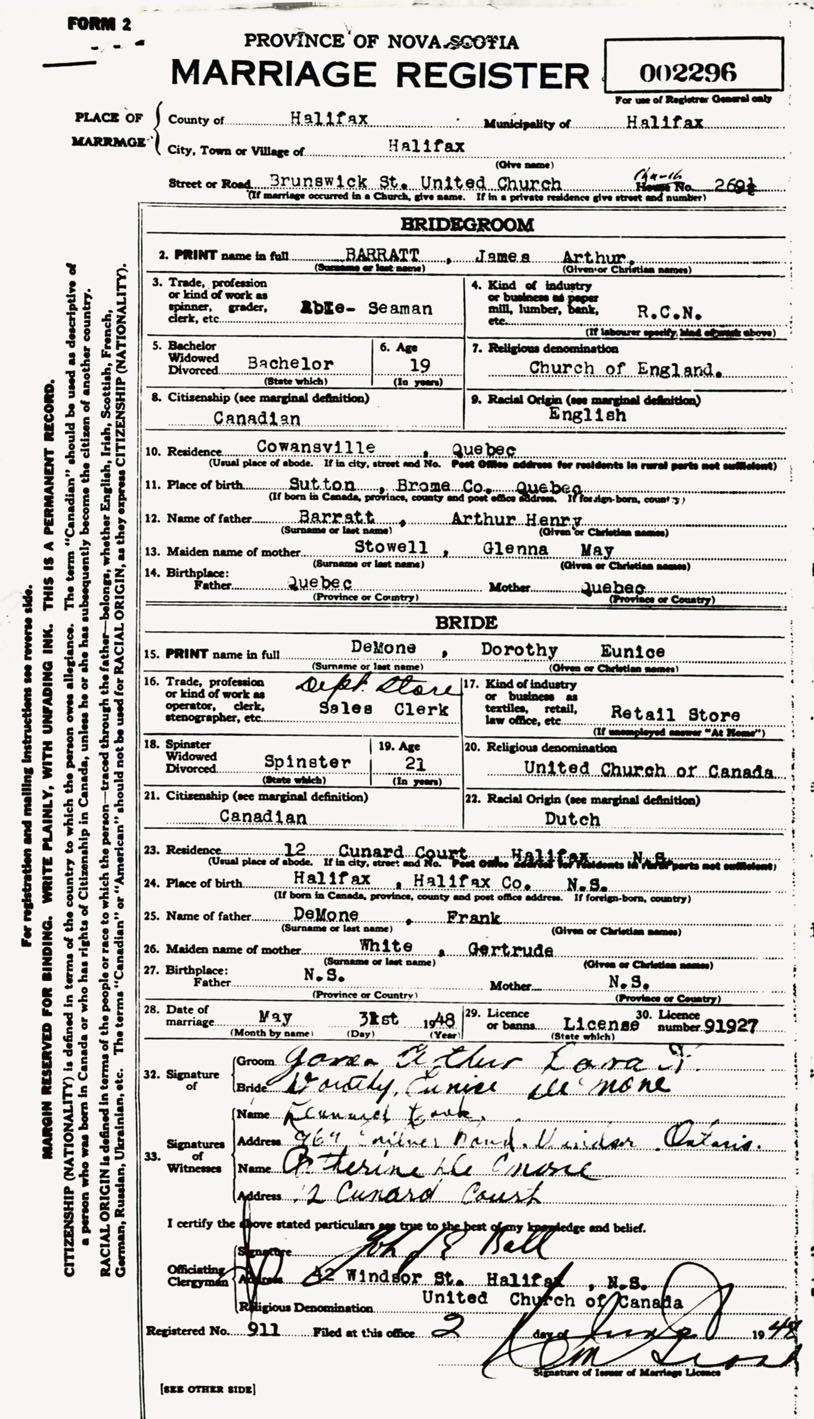 FORM 2
PROVINCE OF NOVA SCOTIA
MARRIAGE REGISTER
002296
For use of Registrar General only
PLACE OF MARRIAGE
County of Halifax Municipality of Halifax
City, Town or Village of Halifax
(Give name)
Street or Road Brunswick St. United Church Church House No. 269½
(If marriage occurred in a Church, give name. If in a private residence give street and number)
BRIDEGROOM
2. PRINT name in full BARRATT , James Arthur.
(Surname or last name) (Given or Christian names)
3. Trade, profession or kind of work as spinner, grader, clerk, etc. Able- Seaman
4. Kind of industry or business as paper mill, lumber, bank, etc. R.C.N.
(If labourer specify kind of work above)
5. Bachelor Widowed Divorced Bachelor
(State which)
6. Age 19
(In years)
7. Religious denomination
Church of England.
8. Citizenship (see marginal definition)
Canadian
9. Racial Origin (see marginal definition)
English
10. Residence Cowansville , Quebec
(Usual place of abode. If in city, street and No. Post Office address for residents in rural parts not sufficient)
11. Place of birth Sutton , Brome Co. Quebec
(If born in Canada, province, county and post office address. If foreign-born, country)
12. Name of father Barratt , Arthur Henry
(Surname or last name) (Given or Christian names)
13. Maiden name of mother Stowell , Glenna May
(Surname or last name) (Given or Christian names)
14. Birthplace:
Father Quebec Mother Quebec
(Province or Country) (Province or Country)
BRIDE
15. PRINT name in full DeMone , Dorothy Eunice
(Surname or last name) (Given or Christian names)
16. Trade, profession or kind of work as operator, clerk, stenographer, etc. Dept. Store Sales Clerk
17. Kind of industry or business as textiles, retail, law office, etc. Retail Store
(If unemployed answer "At Home")
18. Spinster Widowed Divorced Spinster
(State which)
19. Age 21
(In years)
20. Religious denomination
United Church of Canada
21. Citizenship (see marginal definition)
Canadian
22. Racial Origin (see marginal definition)
Dutch
23. Residence 12 Cunard Court , Halifax N.S.
(Usual place of abode. If in city, street and No. Post Office address for residents in rural parts not sufficient)
24. Place of birth Halifax , Halifax Co. N.S.
(If born in Canada, province, county and post office address. If foreign-born, country)
25. Name of father DeMone , Frank
(Surname or last name) (Given or Christian names)
26. Maiden name of mother White , Gertrude
(Surname or last name) (Given or Christian names)
27. Birthplace:
Father N.S. Mother N.S.
(Province or Country) (Province or Country)
28. Date of marriage May 31st 1948
(Month by name) (Day) (Year)
29. Licence or banns License
(State which)
30. Licence number 91927
32. Signature of
Groom James Arthur
Bride Dorothy Eunice De Mone
33. Signatures of Witnesses
Name
Address Windsor Ontario.
Name De Mone
Address 12 Cunard Court
I certify the above stated particulars are true to the best of my knowledge and belief.
Officiating Clergyman
Signature Ball
Address 42 Windsor St. Halifax , N.S.
Religious Denomination United Church of Canada
Registered No. 911 Filed at this office 2 day of June 1948
Signature of Issuer of Marriage Licence
[SEE OTHER SIDE]
For registration and mailing instructions see reverse side.
MARGIN RESERVED FOR BINDING. WRITE PLAINLY, WITH UNFADING INK. THIS IS A PERMANENT RECORD.
CITIZENSHIP (NATIONALITY) is defined in terms of the country to which the person owes allegiance. The term "Canadian" should be used as descriptive of
a person who was born in Canada or who has rights of Citizenship in Canada, unless he or she has subsequently become the citizen of another country.
RACIAL ORIGIN is defined in terms of the people or race to which the person—traced through the father—belongs, whether English, Irish, Scottish, French,
German, Russian, Ukrainian, etc. The terms "Canadian" or "American" should not be used for RACIAL ORIGIN, as they express CITIZENSHIP (NATIONALITY).